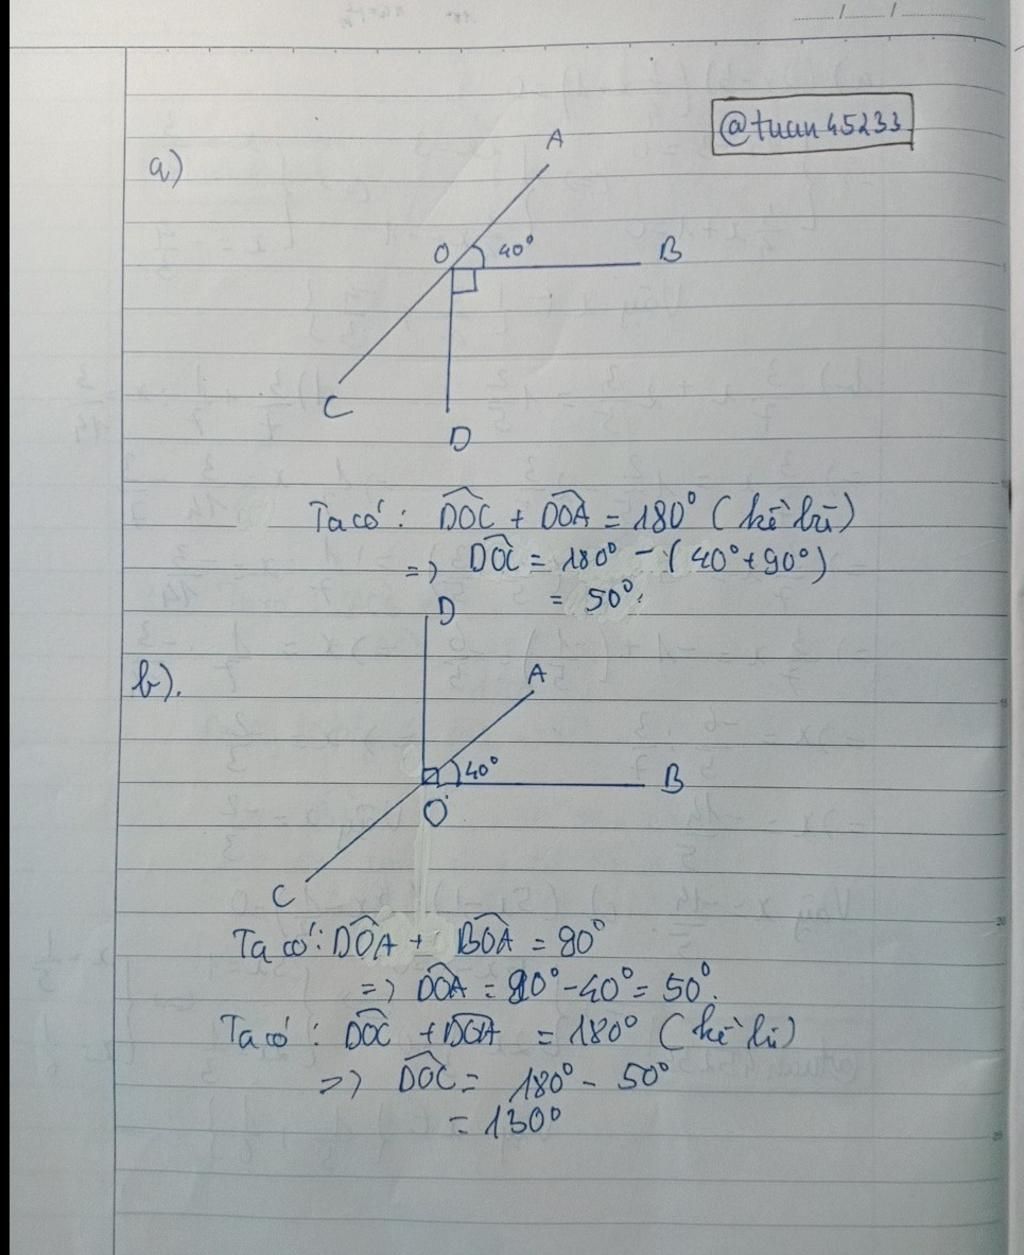 @tuan45233
a)
A
O 40° B
C
D
Ta có: DOC + DOA = 180° (kề bù)
=> DOC = 180° - (40° + 90°)
= 50°.
D
b).
A
40°
B
O
C
Ta có: DOA + BOA = 90°
=> DOA = 90° - 40° = 50°.
Ta có: DOC + DOA = 180° (kề bù)
=> DOC = 180° - 50°
= 130°